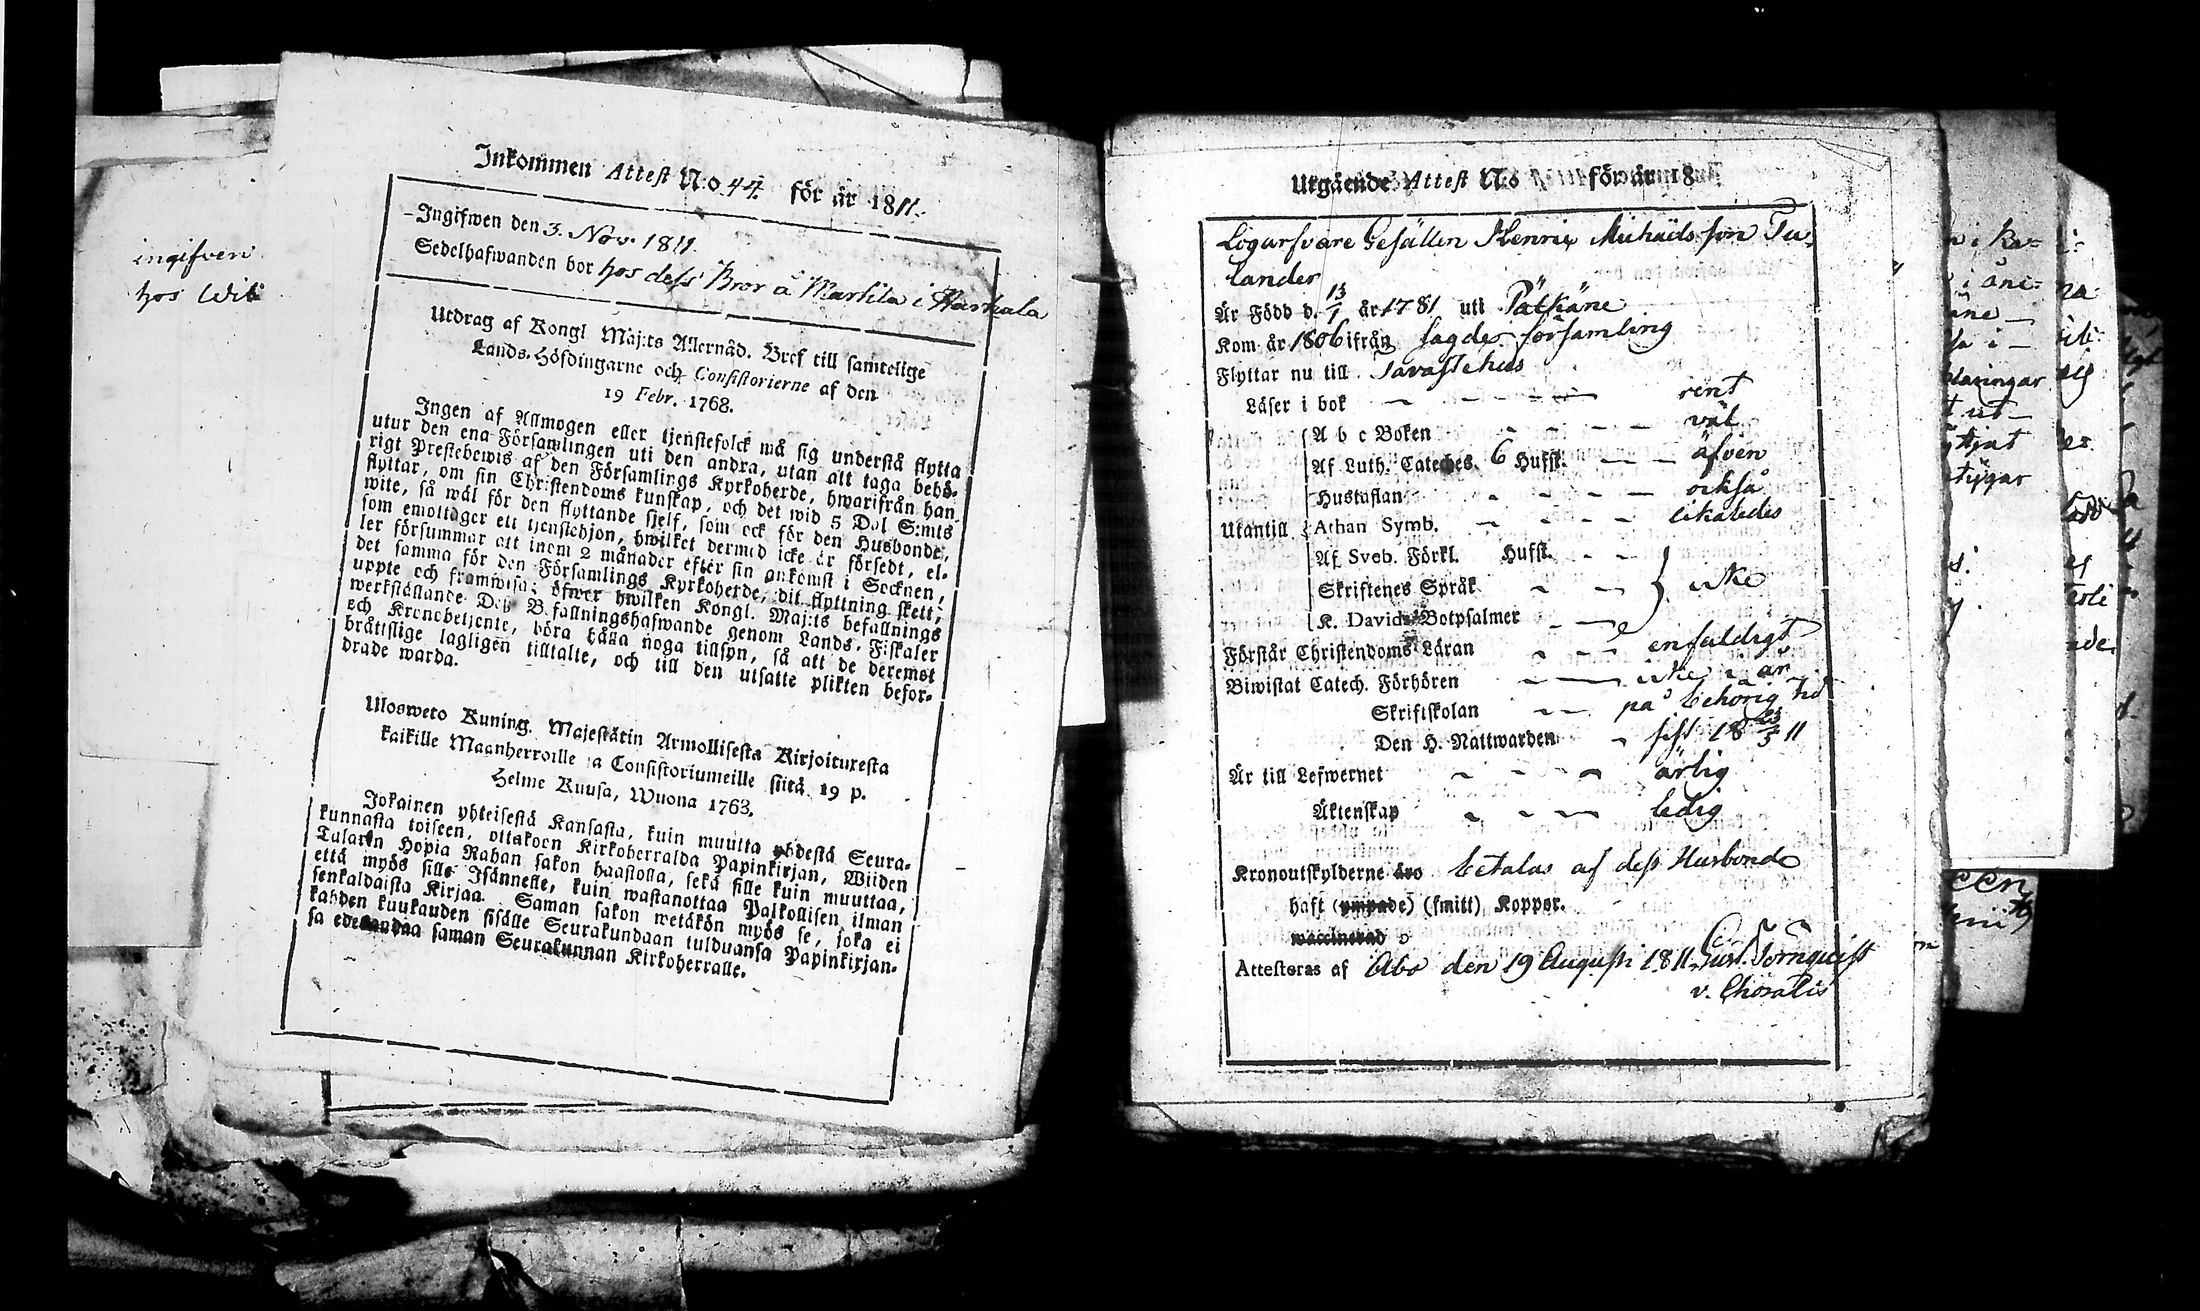 ingifven
hos
Inkommen Attest N:o 44. för år 1811.
Ingifwen den 3. Nov. 1811.
Sedelhafwanden bor hos dess Bror å Marttila i Harhala
Utdrag af Kongl Maj:ts Allernåd. Bref till samtelige
Lands-Höfdingarne och Consistorierne af den
19 Febr. 1768.
Ingen af Allmogen eller tjenstefolck må sig understå flytta
utur den ena Församlingen uti den andra, utan att taga behö-
rigt Prestebewis af den Församlings Kyrkoherde, hwarifrån han
flyttar, om sin Christendoms kunskap, och det wid 5 Dal S:mts
wite, så wäl för den flyttande sjelf, som ock för den Husbonde,
som emottager ett tjenstehjon, hwilket dermed icke är försedt, el-
ler försummar att inom 2 månader efter sin ankomst i Socknen,
det samma för den Församlings Kyrkoherde, dit flyttning skett,
uppte och framwisa; öfwer hwilken Kongl. Maj:ts befallnings
werkställande Deß Befallningshafwande genom Lands-Fiskaler
och Kronobetjente, böra hålla noga tillsyn, så att de deremot
bråttslige lagligen tilltalte, och till den utsatte plikten befor-
drade warda.
Ulosweto Kuning. Majestätin Armollisesta Kirjoituxesta
kaikille Maanherroille ja Consistoriumeille siitä 19 p.
Helme Kuusa, Wuona 1763.
Jokainen yhteisestä Kansasta, kuin muutta yhdestä Seura-
kunnasta toiseen, ottakoon Kirkoherralda Papinkirjan, Wiiden
Talarin Hopia Rahan sakon haastolla, sekä sille kuin muuttaa,
että myös sille Isännelle, kuin wastanottaa Palkollisen ilman
senkaldaista Kirjaa. Saman sakon wetäkön myös se, joka ei
kahden kuukauden sisälle Seurakundaan tulduansa Papinkirjan-
sa edesandaa saman Seurakunnan Kirkoherralle.
Utgående Attest N:o för år 18
Logarfvare Gesällen Henric Michaëls son Tu-
lander
Är Född d. 13/1 år 1781 uti Pälkäne
Kom år 1806 ifrån sagde församling
Flyttar nu till Tavastehus
Läser i bok rent
A b c Boken väl
Af Luth. Catechef. 6 Hufst. äfven
Hustaflan också
Utantill Athan Symb. likaledes
Af Sveb. Förkl. Hufst.
Skriftenes Språk icke
K. Davids Botpsalmer
Förstår Christendoms Läran enfaldigt
Biwistat Catech. Förhören icke i år
Skriftskolan på behörig tid
Den H. Nattwarden sist 18 23/5 11
Är till Lefwernet ärlig
Äktenskap ledig
Kronoutskylderne äro betalas af dess Husbonde
haft (ympade) (smitt) Koppor.
waccinerad
Attesteras af Åbo den 19 Augusti 1811. Gust. Törnquist
v. Choralis